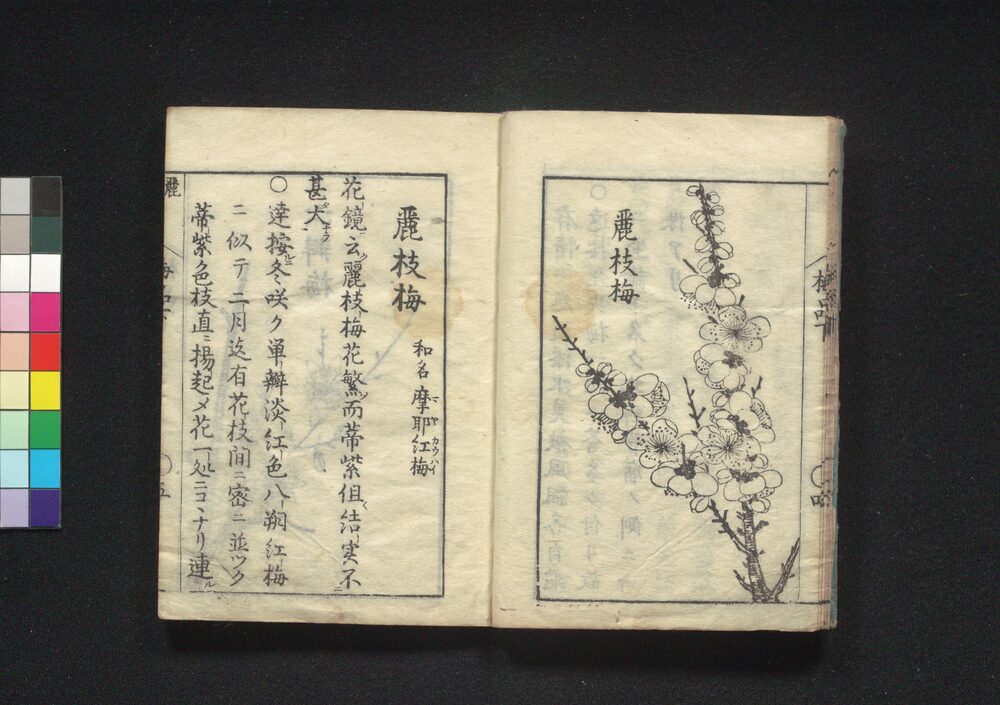 麗枝梅
梅品
麗枝梅
和名 摩耶紅梅
マヤ カウハイ
花鏡云麗枝梅花繁而蒂紫但結実不
甚大
〇達按冬咲ク単瓣淡紅色八朔紅梅
ニ似テ二月迄有花枝間ニ密ニ並ツク
蒂紫色枝直ニ揚起メ花一処ニコヽナリ連ル
麗
〇五